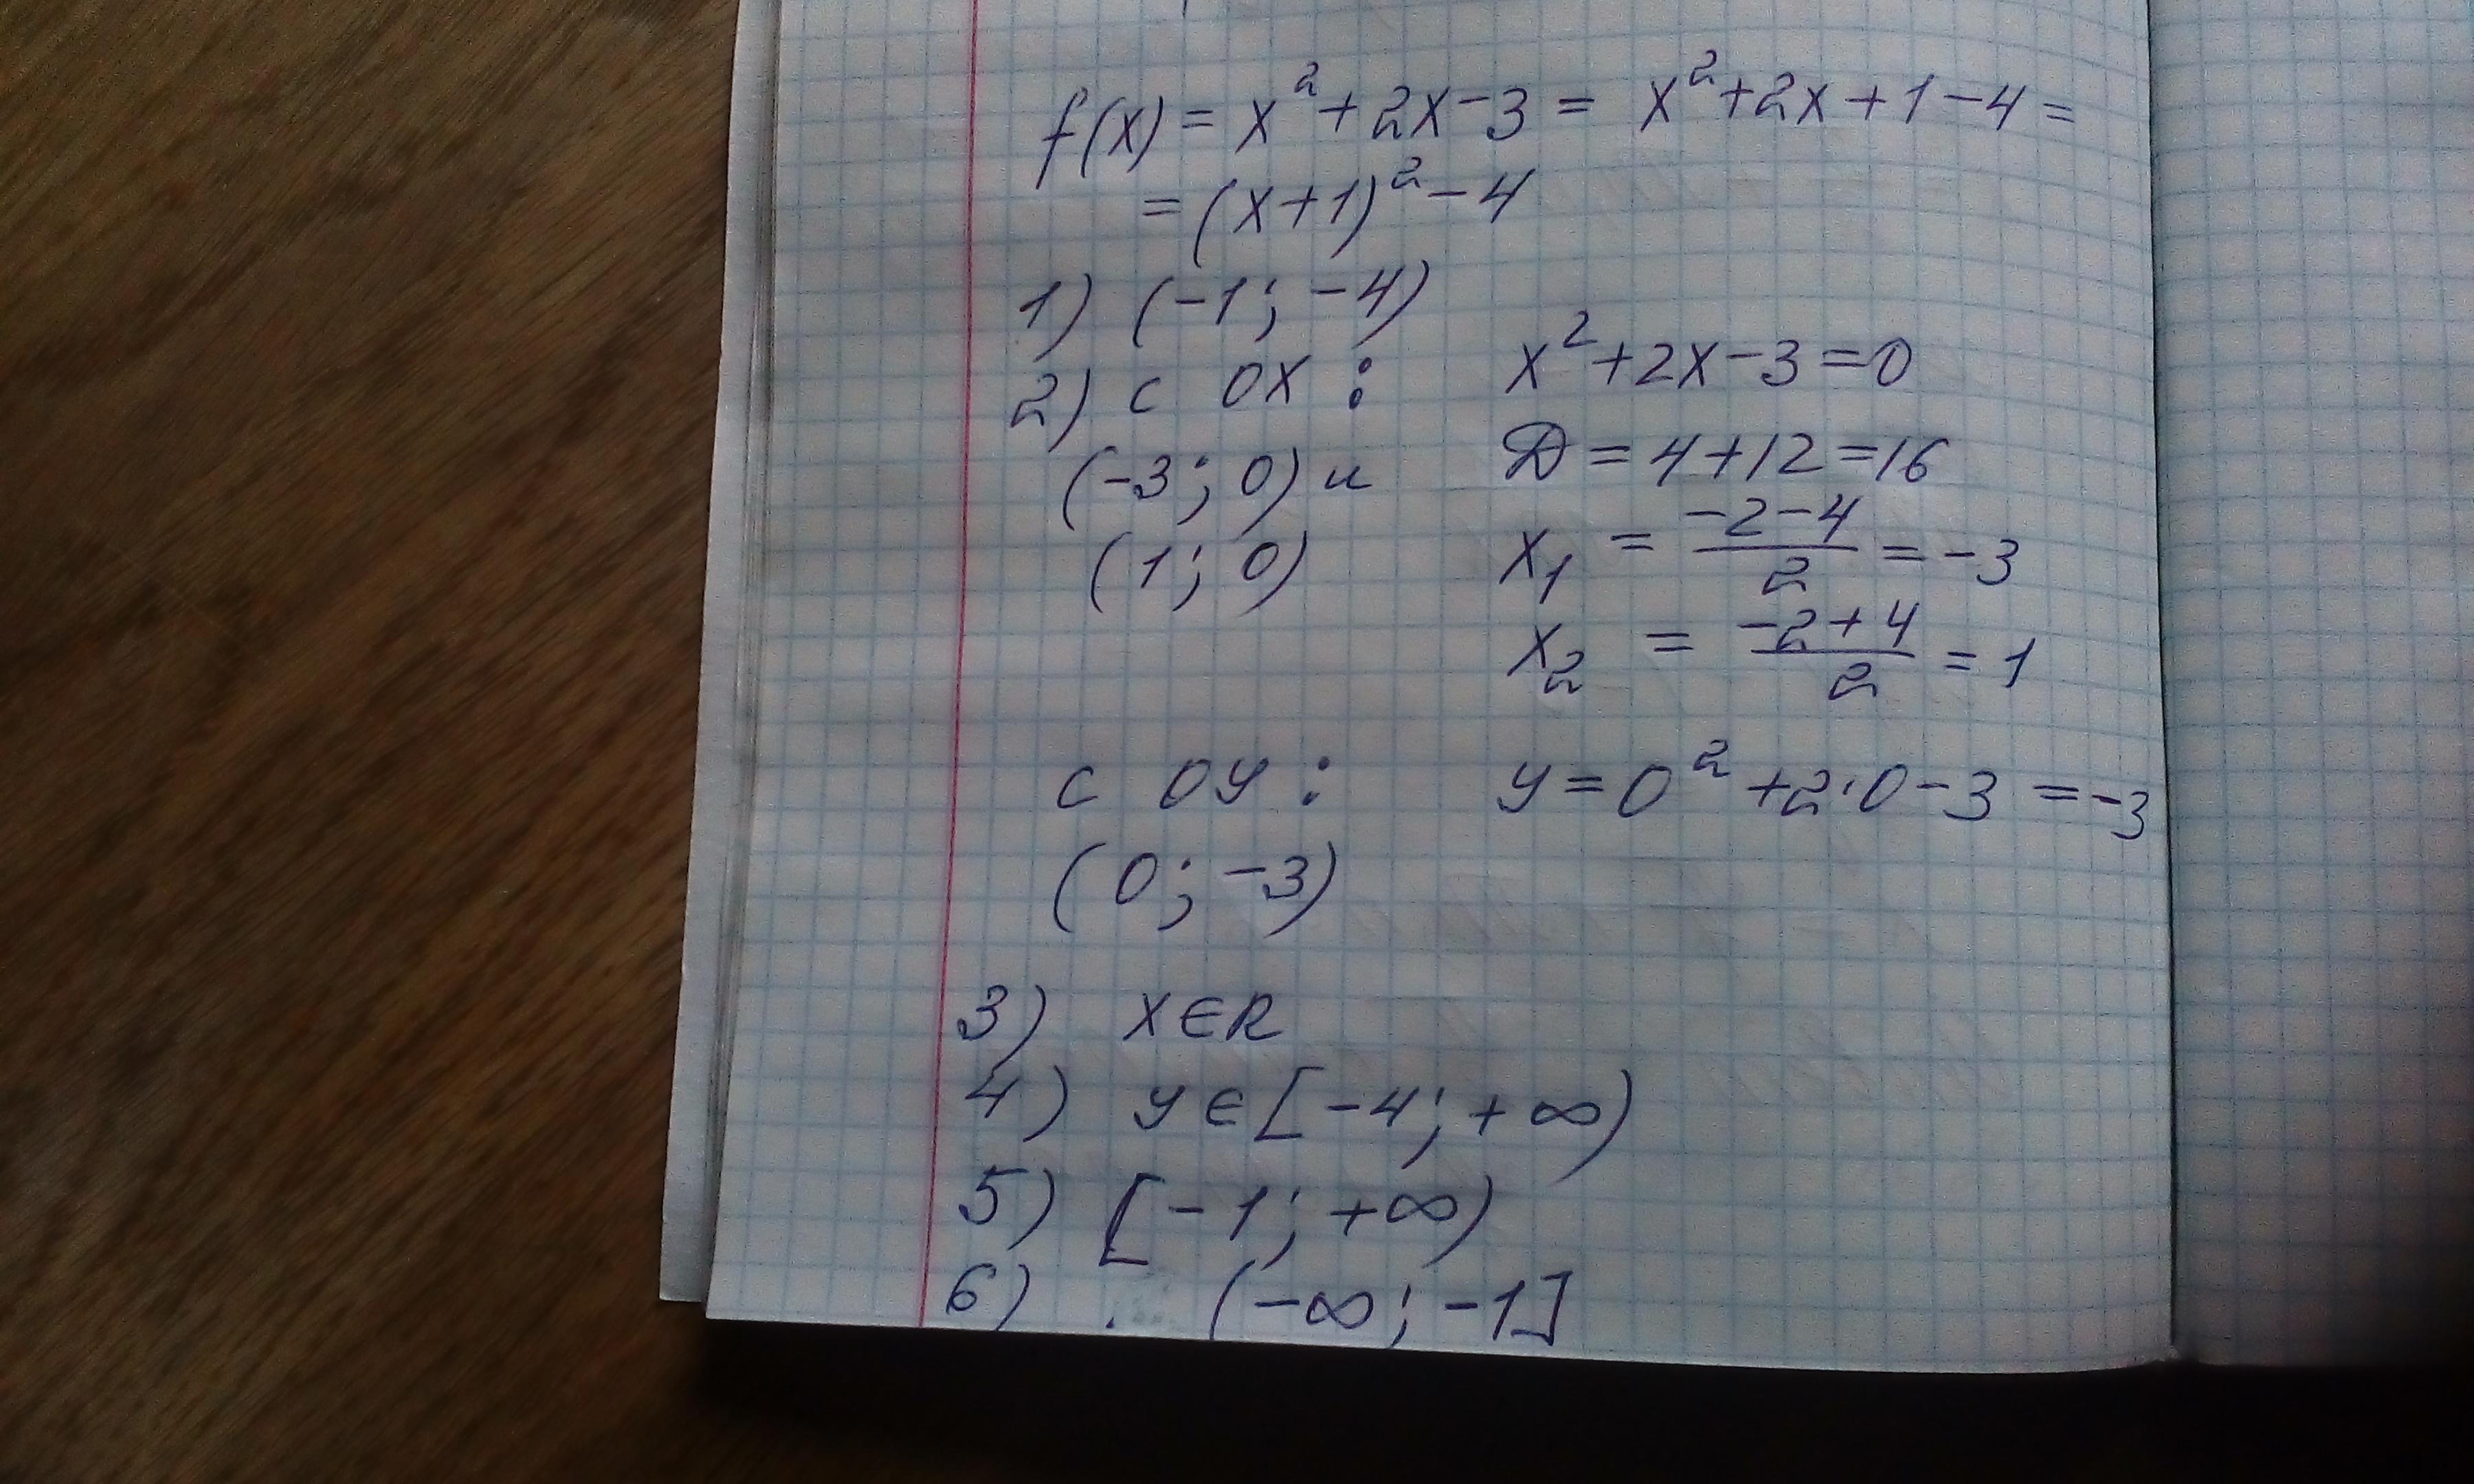 f(x) = x² + 2x - 3 = x² + 2x + 1 - 4 =
= (x+1)² - 4
1) (-1; -4)
2) с OX : x² + 2x - 3 = 0
(-3; 0) и D = 4 + 12 = 16
(1; 0) x₁ = (-2-4)/2 = -3
x₂ = (-2+4)/2 = 1
с OY : y = 0² + 2·0 - 3 = -3
(0; -3)
3) x ∈ R
4) y ∈ [-4; +∞)
5) [-1; +∞)
6) (-∞; -1]